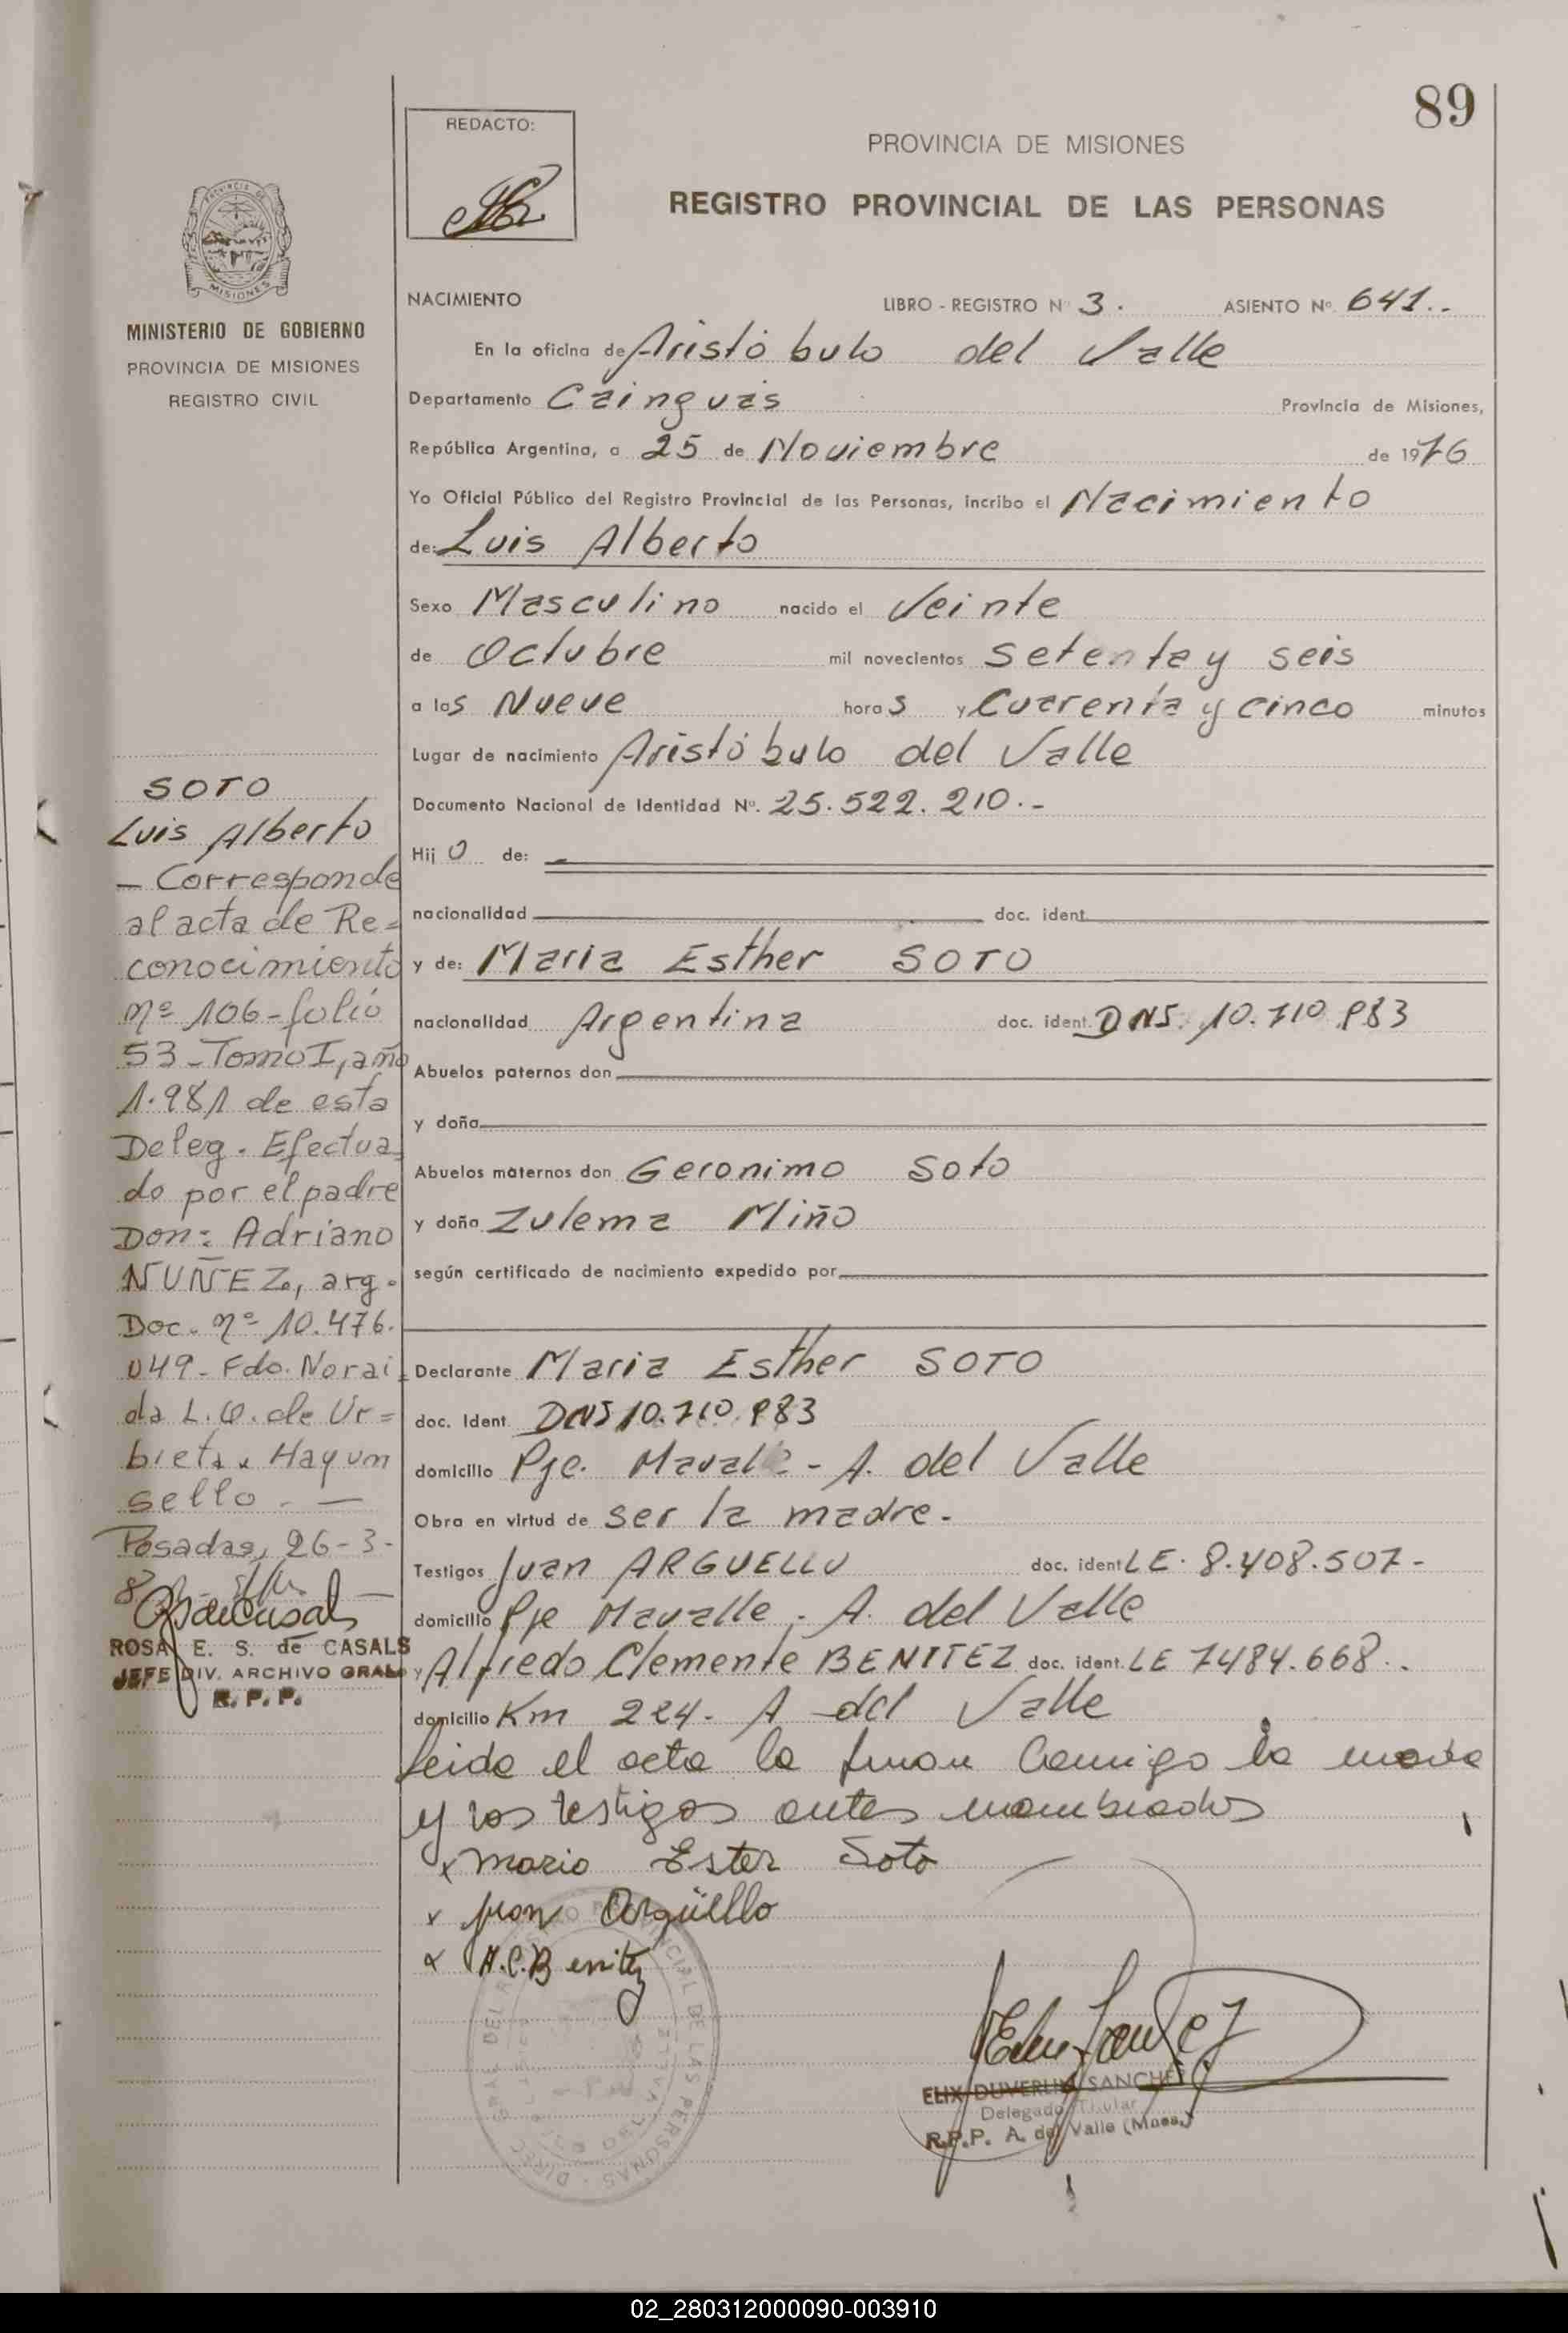 89
REDACTO:
PROVINCIA DE MISIONES
REGISTRO PROVINCIAL DE LAS PERSONAS
MISIONES
MINISTERIO DE GOBIERNO
PROVINCIA DE MISIONES
REGISTRO CIVIL
SOTO
Luis Alberto
— Corresponde
al acta de Re=
conocimiento
nº 106 - folio
53 - Tomo I, año
1.981 de esta
Deleg. Efectua_
do por el padre
Don: Adriano
NUÑEZ, arg.
Doc. nº 10.476.
049 - Fdo. Norai_
da L. Q. de Ur=
bieta. Hay un
sello. —
Posadas, 26-3-
ROSA E. S. de CASALS
JEFE DIV. ARCHIVO GRAL.
R. P. P.
NACIMIENTO LIBRO - REGISTRO Nº 3. ASIENTO Nº 641..
En la oficina de Aristóbulo del Valle
Departamento Cainguás Provincia de Misiones,
República Argentina, a 25 de Noviembre de 1976
Yo Oficial Público del Registro Provincial de las Personas, incribo el Nacimiento
de: Luis Alberto
Sexo Masculino nacido el Veinte
de Octubre mil novecientos setenta y seis
a las Nueve horas y Cuarenta y cinco minutos
Lugar de nacimiento Aristóbulo del Valle
Documento Nacional de Identidad Nº. 25.522.210.-
Hijo de:
nacionalidad doc. ident.
y de: Maria Esther SOTO
nacionalidad Argentina doc. ident. DNI. 10.710.983
Abuelos paternos don
y doña
Abuelos maternos don Geronimo Soto
y doña Zulema Miño
según certificado de nacimiento expedido por
Declarante Maria Esther SOTO
doc. Ident. DNI 10.710.983
domicilio Pje. Mavalle - A. del Valle
Obra en virtud de ser la madre.
Testigos Juan ARGUELLO doc. ident LE. 8.408.507-
domicilio Pje Mavalle. A. del Valle
y Alfredo Clemente BENITEZ doc. ident. LE 7484.668..
domicilio Km 224- A del Valle
leida el acta la firman Comigo la madre
y los testigos antes mombrados
x maria Ester Soto
x juan Argüello
x A.C.Benitez
ELIX DUVERLIN SANCHEZ
Delegado Titular
R.P.P. A. del Valle (Mnes.)
02_280312000090-003910